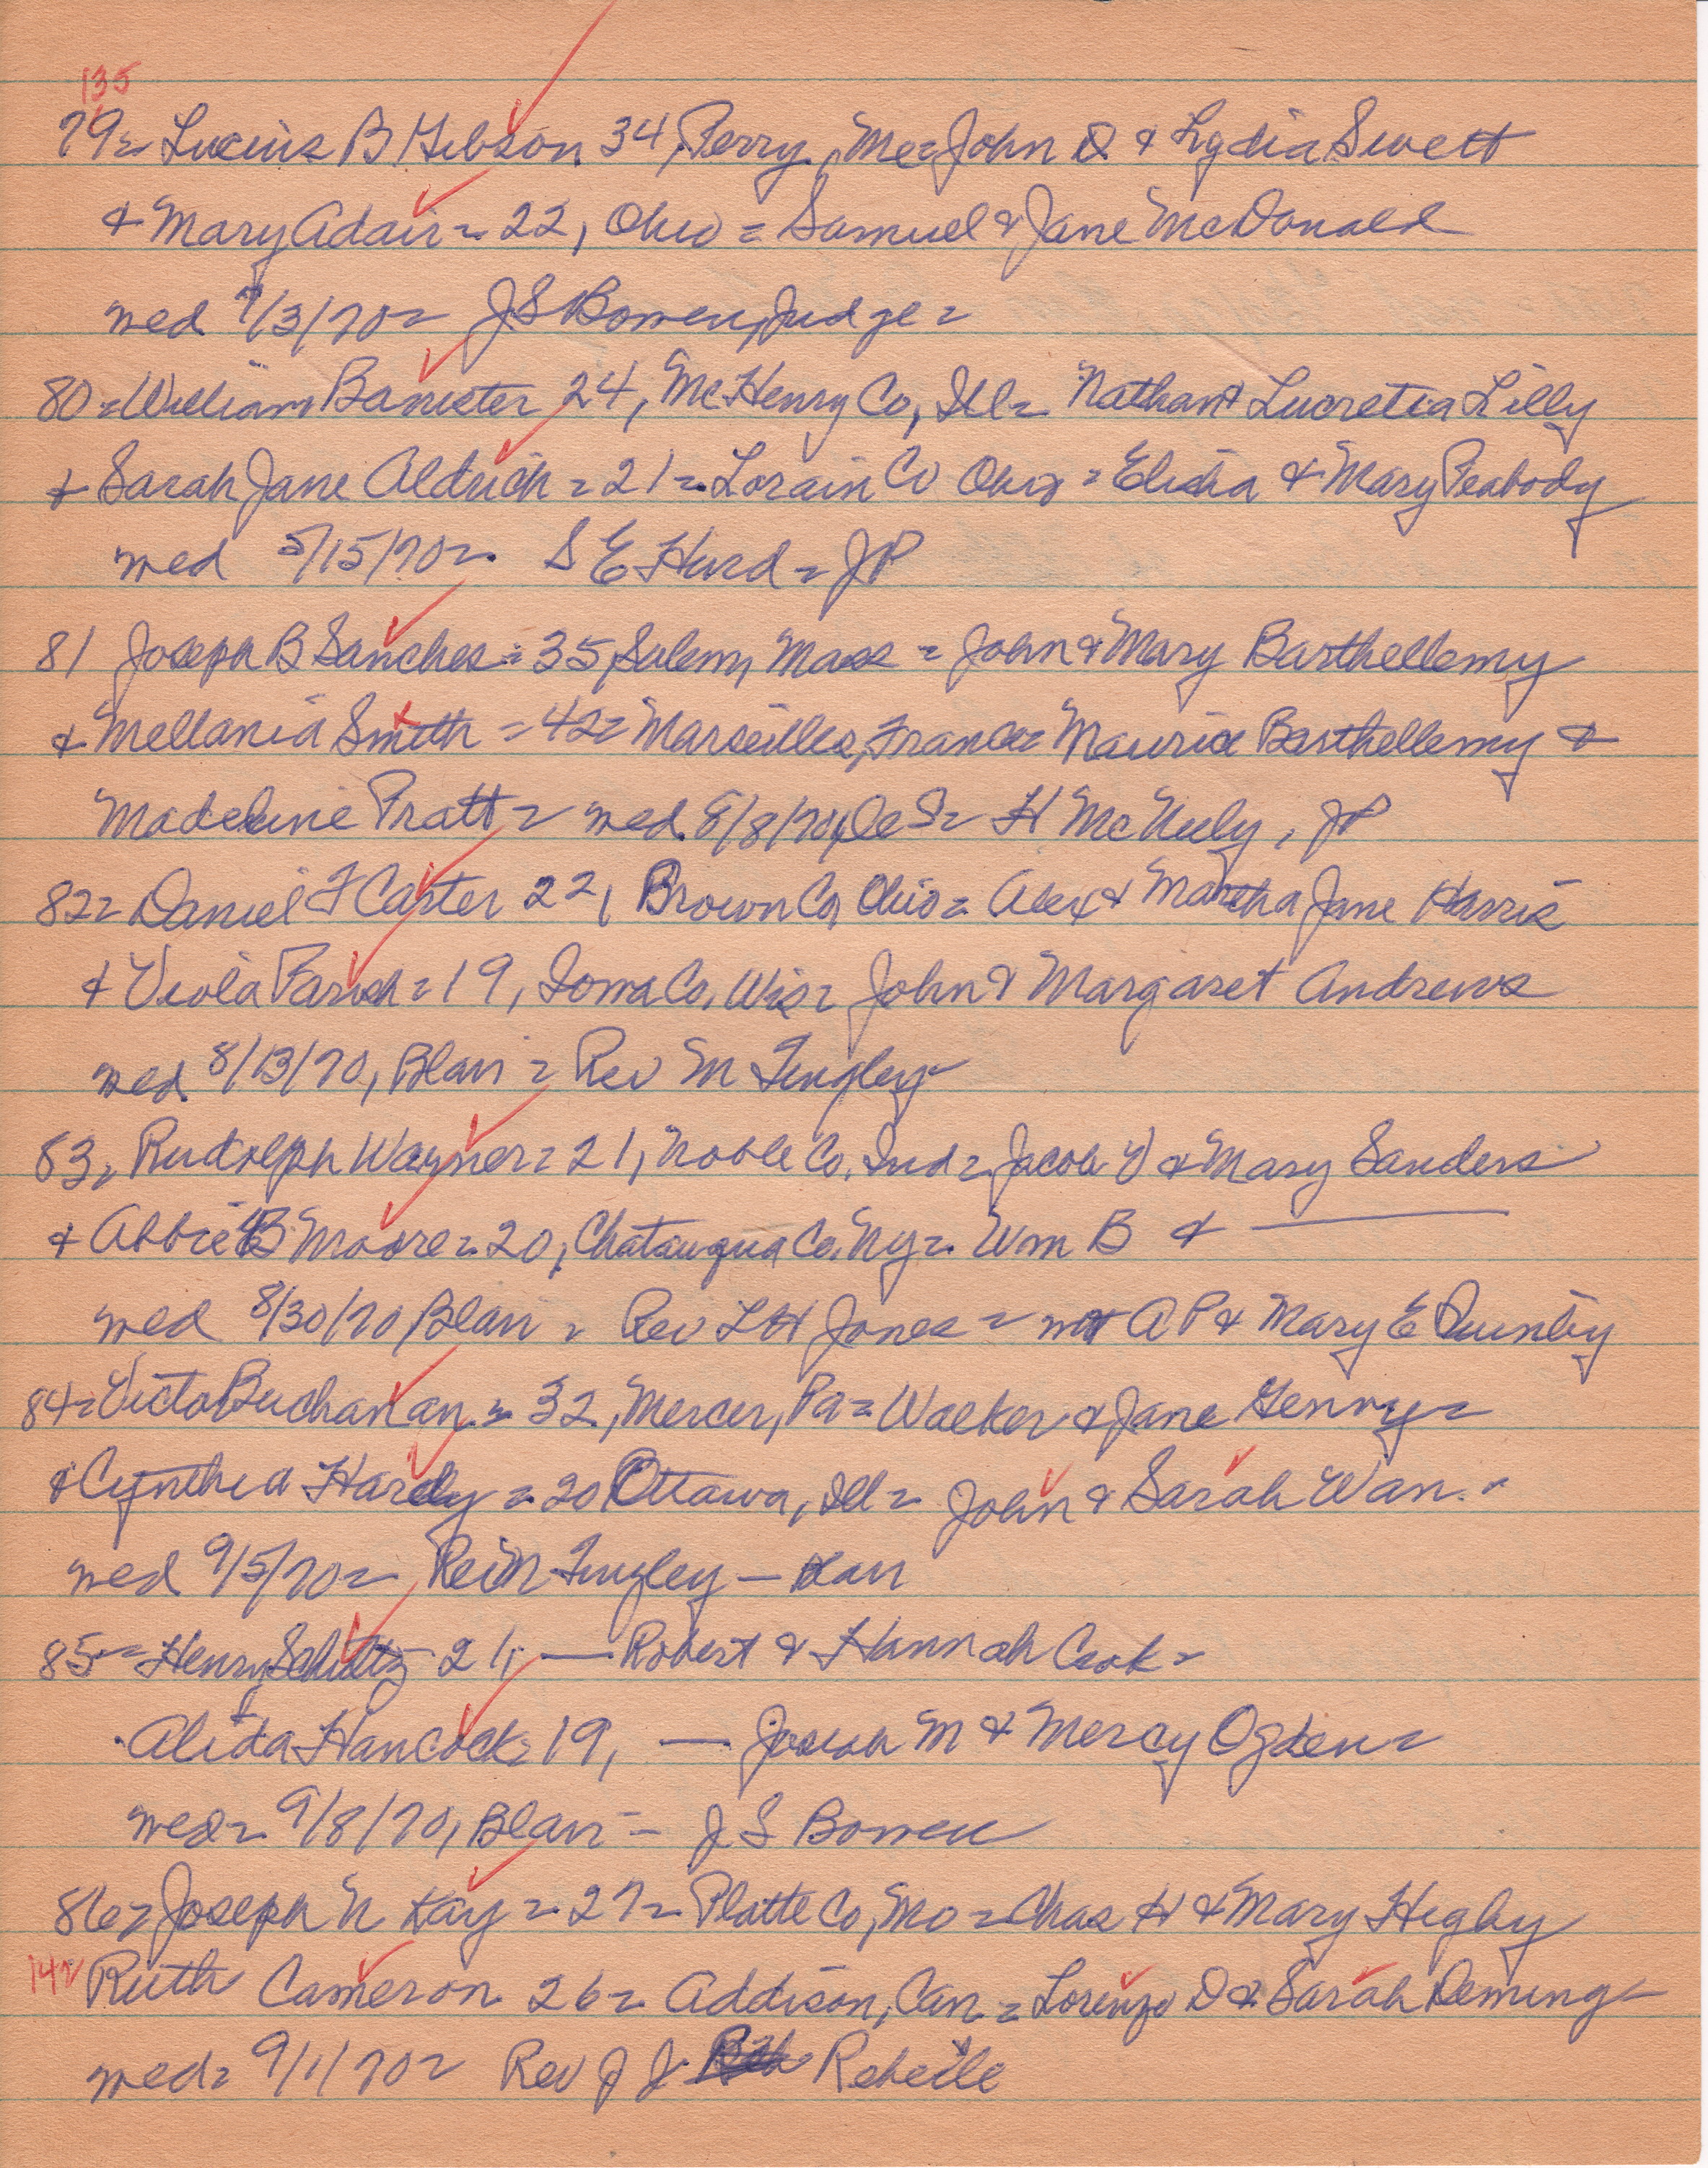 135
79= Lucius B Gibson 34, Perry, Me= John D & Lydia Swett
& Mary Adair= 22, Ohio = Samuel & Jane McDonald
wed 7/3/70= J S Bowen, Judge=
80= William Banister 24, McHenry Co, Ill= Nathan & Lucretia Lilly
& Sarah Jane Aldrich = 21= Lorain Co Ohio = Elisha & Mary Peabody
wed 5/15/70=. S E Hurd = JP
81 Joseph B Sanches= 35, Salem, Mass = John & Mary Barthellemy
& Mellania Smith = 42= Marseilles, France= Maurice Barthellemy &
Madeleine Pratt= wed 8/8/70, De S= H McNeely, JP
82= Daniel F Carter 22, Brown Co, Ohio= Alex & Martha Jane Harris
& Viola Parish = 19, Iowa Co, Wis= John & Margaret Andrews
wed 8/13/70, Blair = Rev M Tingley
83, Rudolph Wagner= 21, Noble Co. Ind= Jacob & Mary Sanders
& Abbie B Moore= 20, Chatauqua Co, Ny=. Wm B & ———
wed 8/30/70 Blair = Rev L H Jones = A P & Mary E Quinby
84= Victo Buchanan = 32, Mercer, Pa= Walker & Jane
& Cynthia Hardy = 20 Ottawa, Ill= John & Sarah Wan.=
wed 9/5/70= Rev M Tingley —
85= Henry Schultz 21, — Robert & Hannah Cook=
Alida Hancock= 19, — Josiah M & Mercy Ogden=
wed= 9/8/70, Blair= J S Bowen
86= Joseph N Kay = 27= Platte Co, Mo = Chas H & Mary Higby
142 Ruth Cameron 26= Addison, Can.= Lorenzo D & Sarah Deming=
wed= 9/1/70= Rev J J